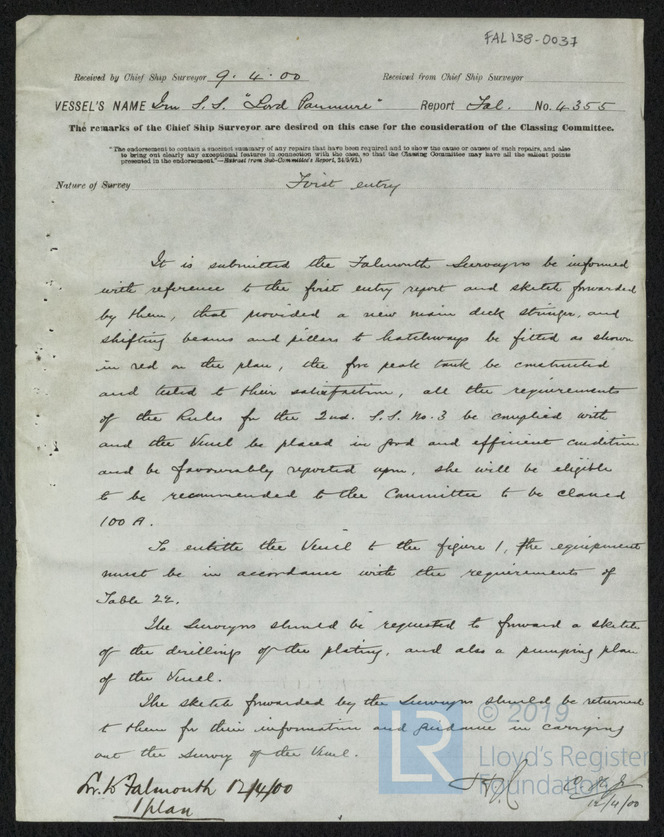 FAL138-0037
Received by Chief Ship Surveyor 9.4.00 Received from Chief Ship Surveyor
VESSEL'S NAME Irn S.S. "Lord Panmure" Report Fal. No. 4355
The remarks of the Chief Ship Surveyor are desired on this case for the consideration of the Classing Committee.
"The endorsement to contain a succinct summary of any repairs that have been required and to show the cause or causes of such repairs, and also
to bring out clearly any exceptional features in connection with the case, so that the Classing Committee may have all the salient points
presented in the endorsement."—Extract from Sub-Committee's Report,
Nature of Survey First entry
It is submitted the Falmouth Surveyors be informed
with reference to the first entry report and sketch forwarded
by them, that provided a new main deck stringer, and
shifting beams and pillars to hatchways be fitted as shown
in red on the plan, the fore peak tank be constructed
and tested to their satisfaction, all the requirements
of the Rules for the 2nd. S.S. No. 3 be complied with
and the Vessel be placed in good and efficient condition
and be favourably reported upon, she will be eligible
to be recommended to the Committee to be classed
100 A.
To entitle the Vessel to the figure 1, the equipment
must be in accordance with the requirements of
Table 22.
The Surveyors should be requested to forward a sketch
of the drillings of the plating, and also a pumping plan
of the Vessel.
The sketch forwarded by the Surveyors should be returned
to them for their information and guidance in carrying
out the Survey of the Vessel.
Falmouth 12/4/00
1 plan
12/4/00
LR
© 2019
Lloyd's Register
Foundation